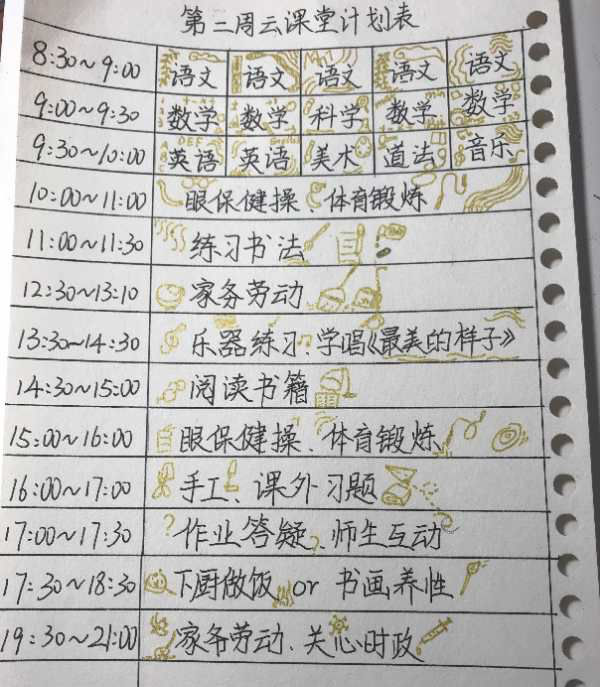 第二周云课堂计划表
8:30~9:00 语文 语文 语文 语文 语文
9:00~9:30 数学 数学 科学 数学 数学
9:30~10:00 英语 英语 美术 道法 音乐
10:00~11:00 眼保健操、体育锻炼
11:00~11:30 练习书法
12:30~13:10 家务劳动
13:30~14:30 乐器练习、学唱《最美的样子》
14:30~15:00 阅读书籍
15:00~16:00 眼保健操、体育锻炼
16:00~17:00 手工、课外习题
17:00~17:30 作业答疑、师生互动
17:30~18:30 下厨做饭 or 书画养性
19:30~21:00 家务劳动、关心时政